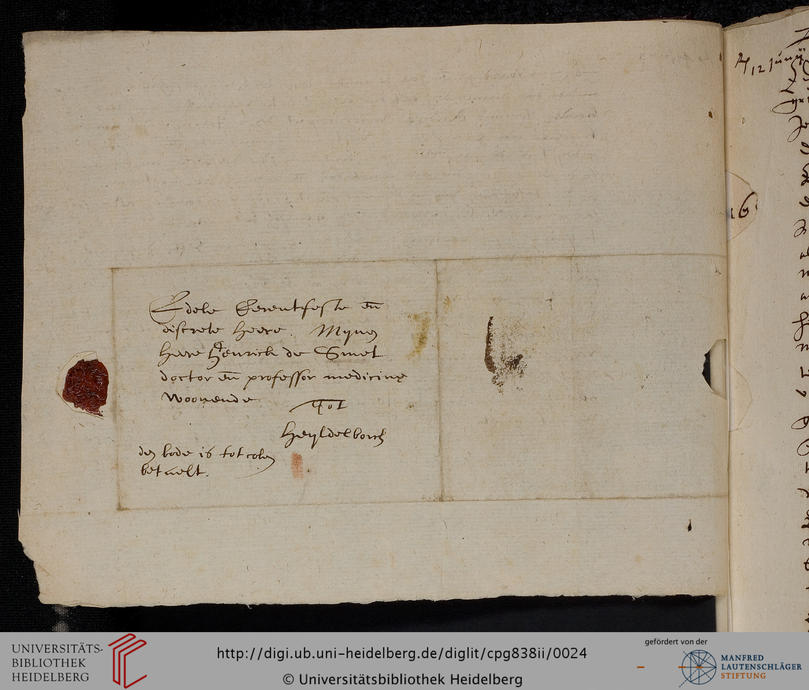 Edele Erentfeste en̄
discrete heere. Mynen
heere Henrick de Smet
doctor en̄ professor medicinę
woonende
Tot
Heyldelborch
den bode is tot colen
betaelt.
12 Junij
16
UNIVERSITÄTS-
BIBLIOTHEK
HEIDELBERG
http://digi.ub.uni-heidelberg.de/diglit/cpg838ii/0024
© Universitätsbibliothek Heidelberg
gefördert von der
MANFRED
LAUTENSCHLÄGER
STIFTUNG